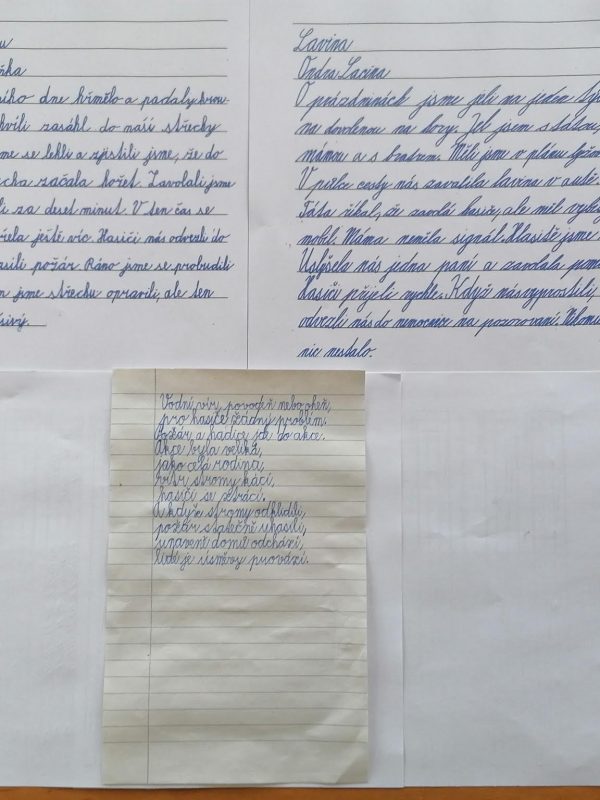 u
ňka
ního dne hřmělo a padaly krou-
hvíli zasáhl do naší střechy
me se lekli a zjistili jsme, že do
cha začala hořet. Zavolali jsme
li za deset minut. V ten čas se
řela ještě víc. Hasiči nás odvezli do
asili požár. Ráno jsme se probudili
n jsme střechu opravili, ale ten
sivý.
Lavina
Ondra Lacina
O prázdninách jsme jeli na jeden týd
na dovolenou na hory. Jel jsem s tátou,
mámou a s bratrem. Měli jsme v plánu lyžov
V půlce cesty nás zavalila lavina v autě.
Táta říkal, že zavolá hasiče, ale měl vybit
mobil. Máma neměla signál. Hlasitě jsme
Uslyšela nás jedna paní a zavolala pomo
Hasiči přijeli rychle. Když nás vyprostili,
odvezli nás do nemocnice na pozorování. Nikomu
nic nestalo.
Vodní vír, povodeň nebo oheň,
pro hasiče žádný problém.
Požár a hadice jde do akce.
Akce byla veliká,
jako celá rodina,
vítr stromy kácí,
hasiči se ztrácí.
A když stromy odklidili,
požár statečně uhasili,
unaveně domů odchází,
lidé je úsměvy provází.